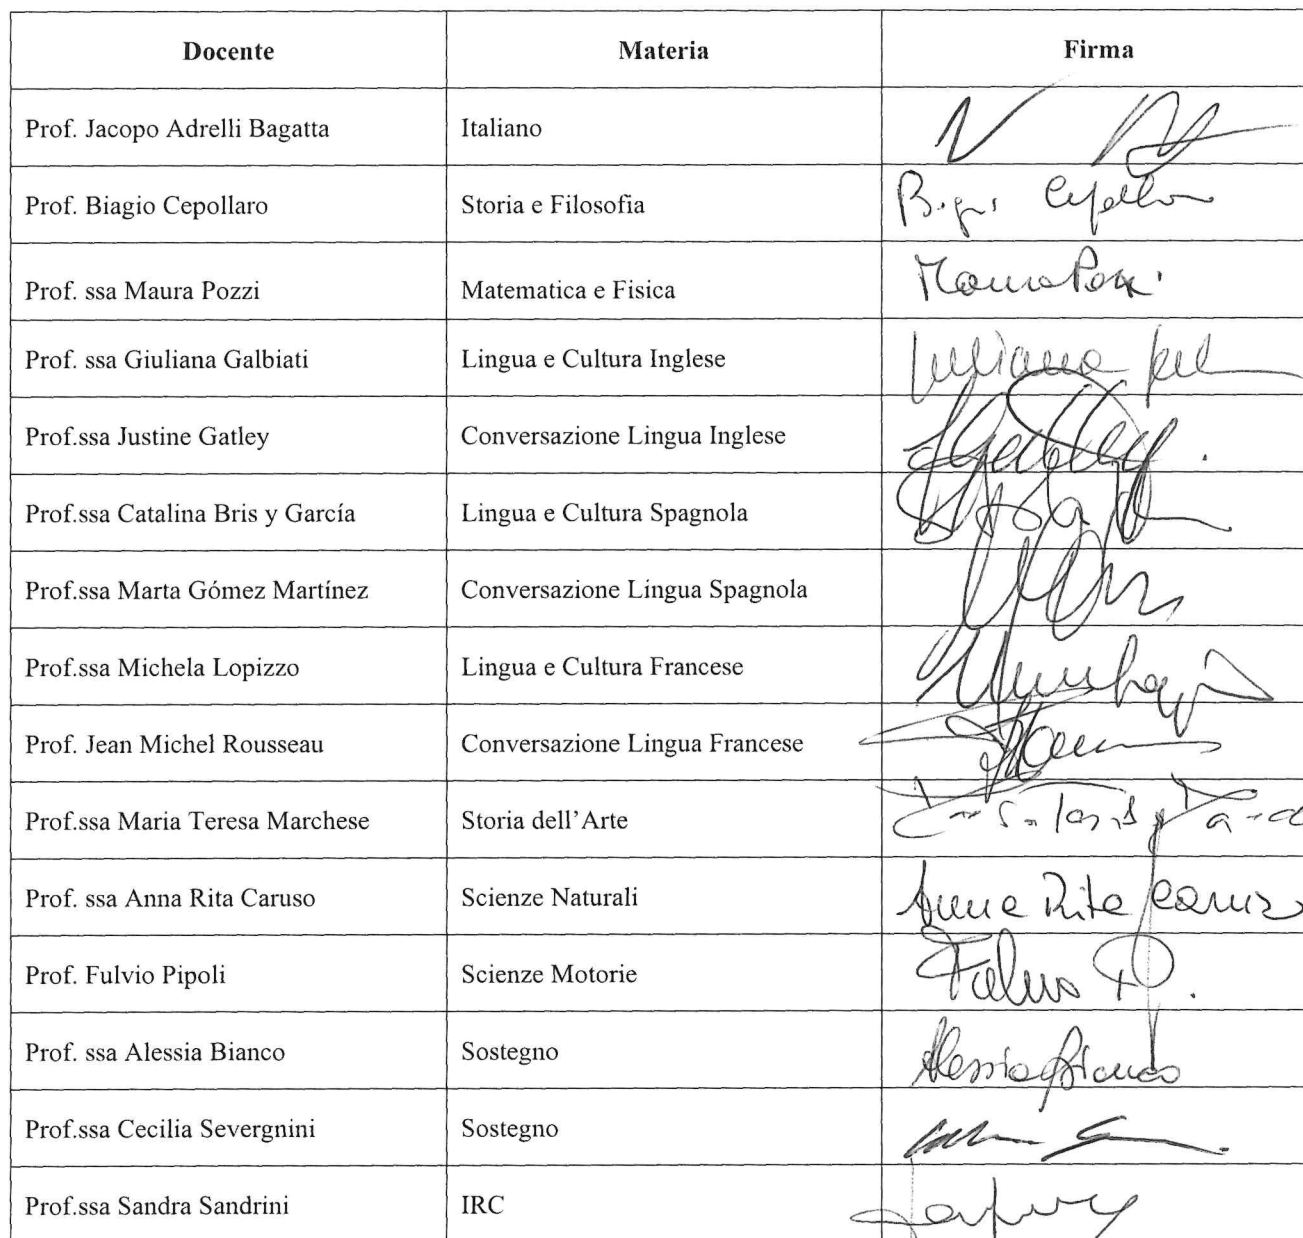 Docente Materia Firma
Prof. Jacopo Adrelli Bagatta Italiano
Prof. Biagio Cepollaro Storia e Filosofia
Prof. ssa Maura Pozzi Matematica e Fisica Maura Pozzi
Prof. ssa Giuliana Galbiati Lingua e Cultura Inglese Giuliana
Prof.ssa Justine Gatley Conversazione Lingua Inglese
Prof.ssa Catalina Bris y García Lingua e Cultura Spagnola
Prof.ssa Marta Gómez Martínez Conversazione Lingua Spagnola
Prof.ssa Michela Lopizzo Lingua e Cultura Francese
Prof. Jean Michel Rousseau Conversazione Lingua Francese
Prof.ssa Maria Teresa Marchese Storia dell’Arte
Prof. ssa Anna Rita Caruso Scienze Naturali Anna Rita Caruso
Prof. Fulvio Pipoli Scienze Motorie Fulvio P.
Prof. ssa Alessia Bianco Sostegno Alessia Bianco
Prof.ssa Cecilia Severgnini Sostegno
Prof.ssa Sandra Sandrini IRC